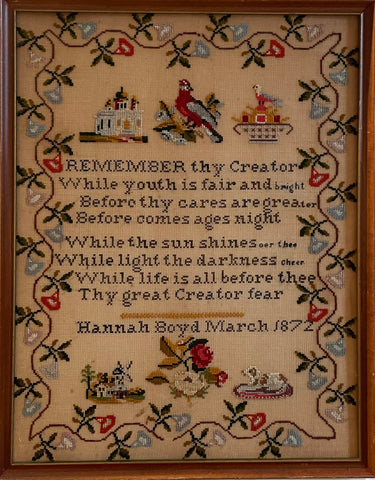 REMEMBER thy Creator
While youth is fair and bright
Before thy cares are greater
Before comes ages night
While the sun shines oer thee
While light the darkness cheer
While life is all before thee
Thy great Creator fear
Hannah Boyd March 1872